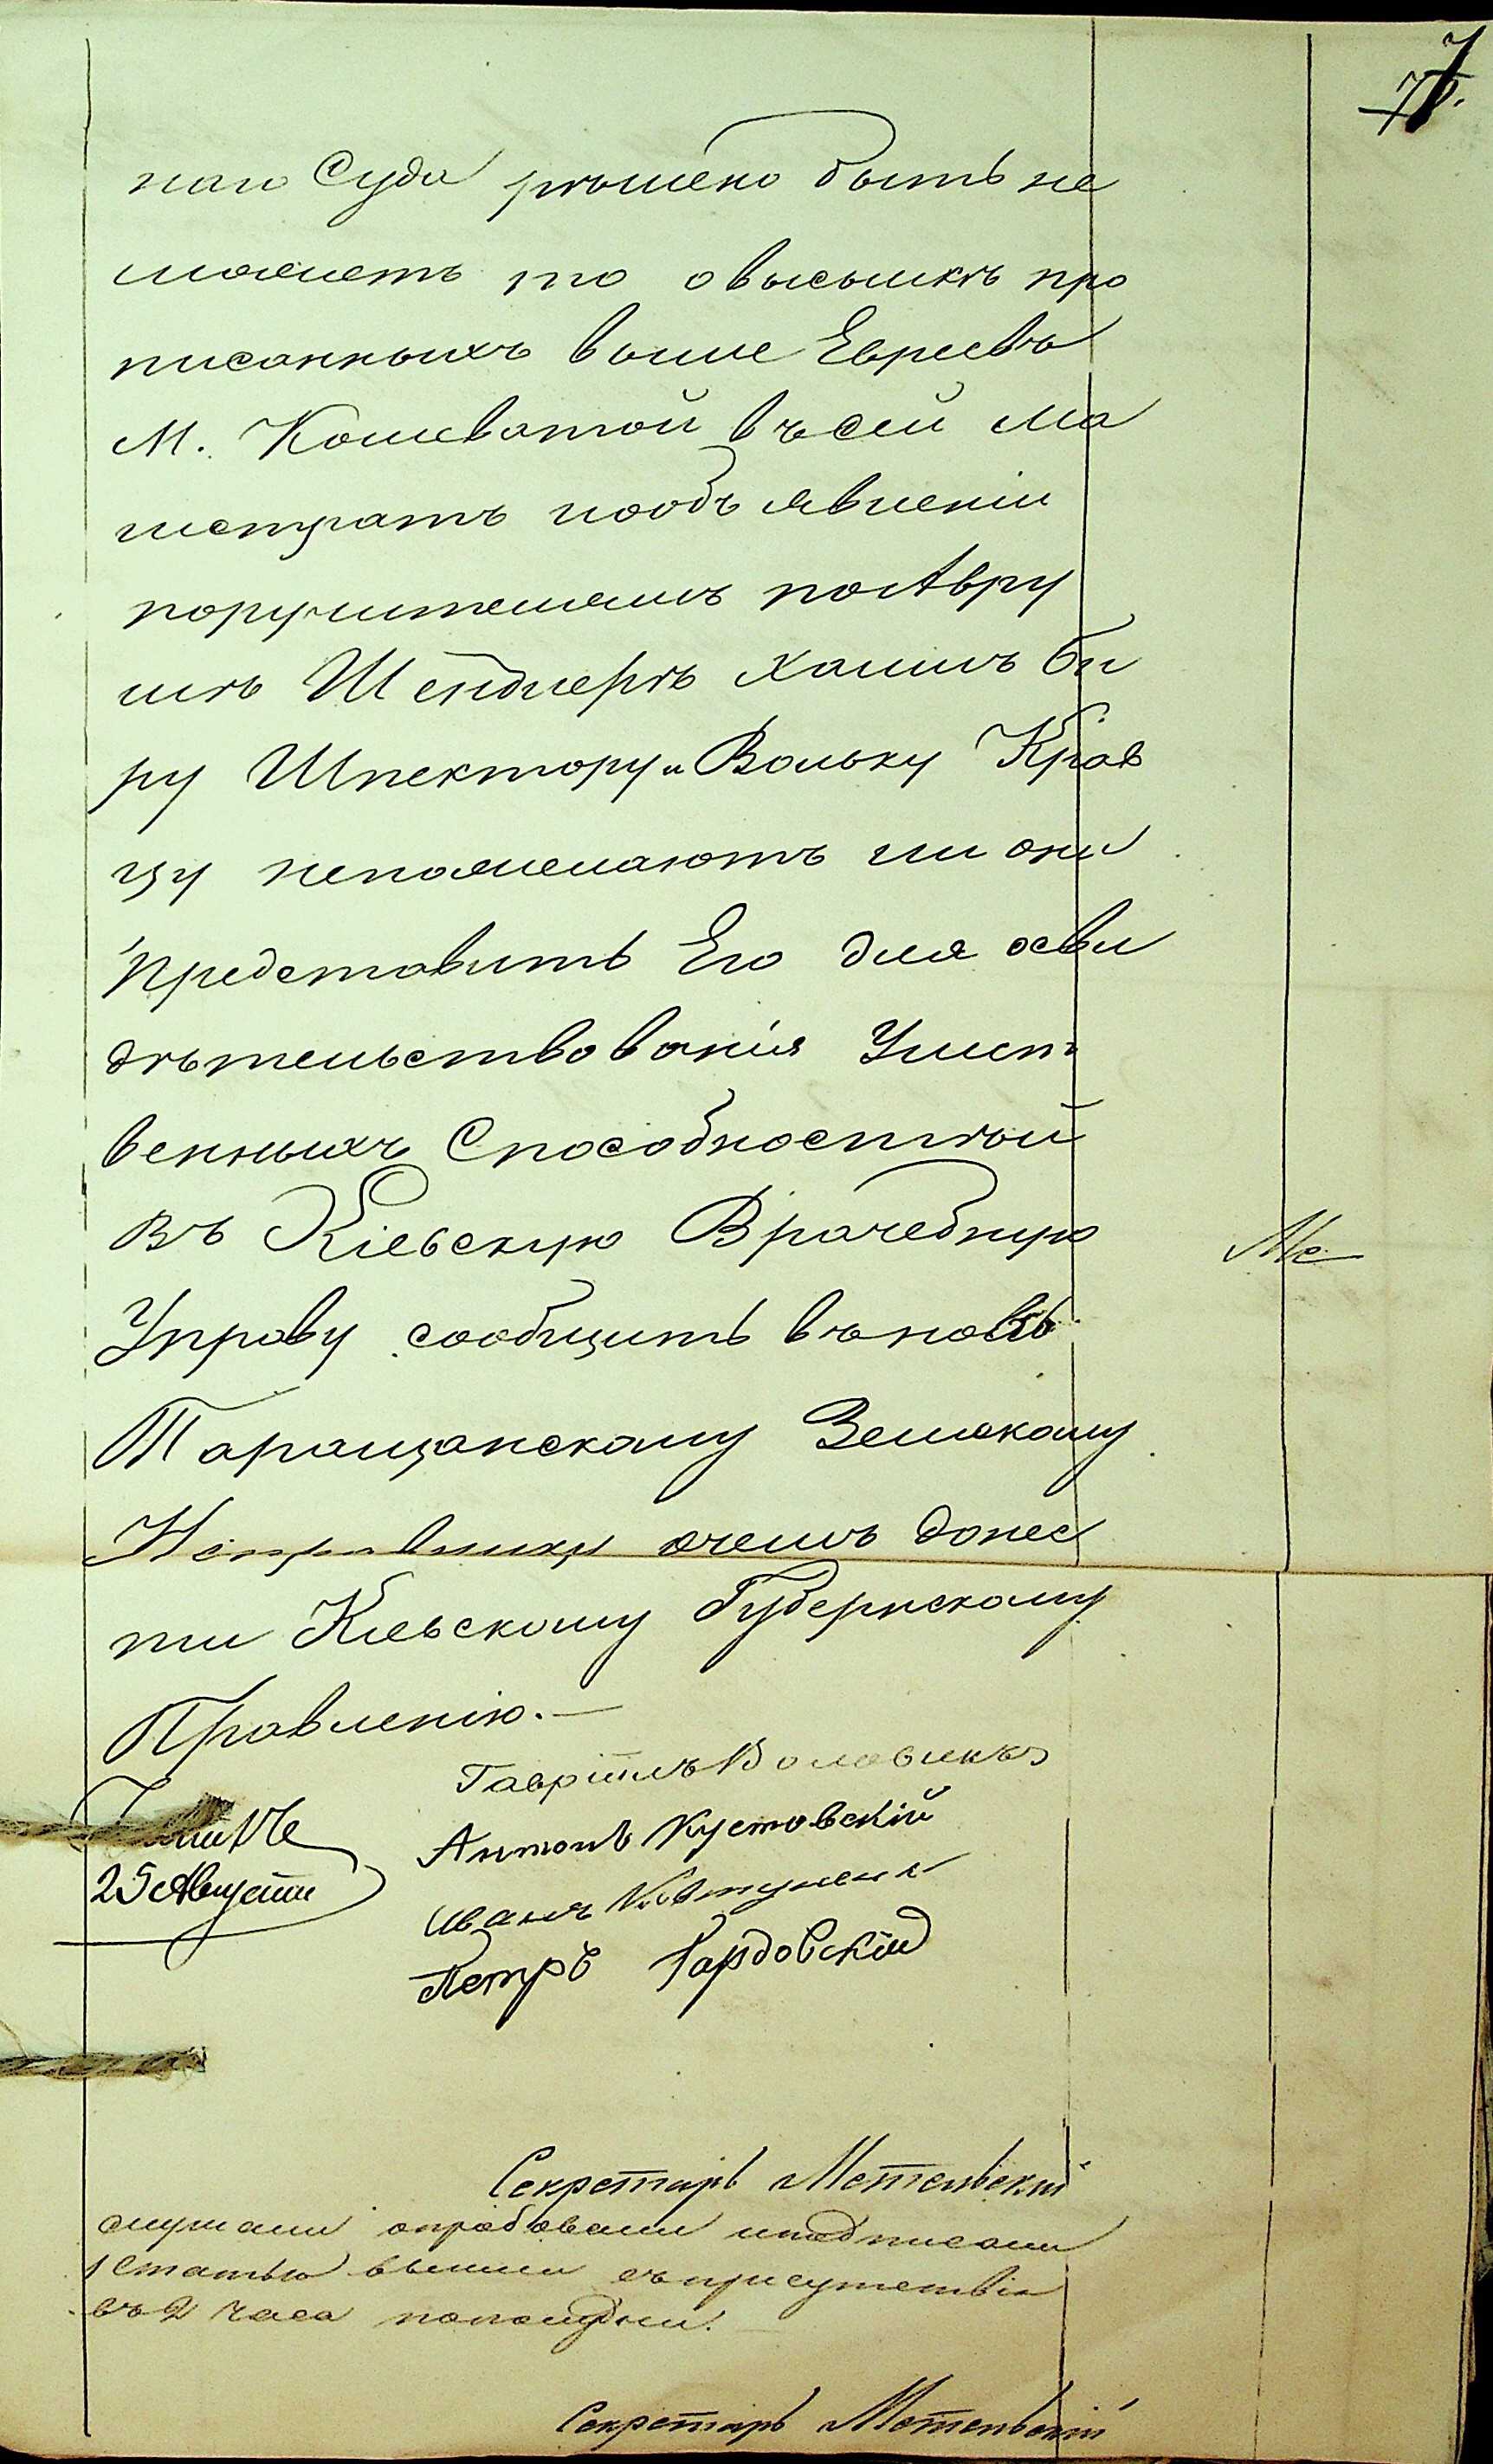 7
наго Суда рѣшено быть не
можетъ то овысылкѣ про
писанныхъ выше Евреевъ
М. Кошеватой въсей Ма
гистратъ пообъявленіи
поручителямъ поАвру
мѣ Шендлерѣ Хаимъ Бе
ру Шпектору и Вольку Крав
цу непожелаютъ ли они
Представить Его для осви
дѣтельствованія Умст
венныхъ Способностѣй
Въ Кіевскую Врачебную
Управу сообщить въновь
Таращанскому Земскому
Исправнику очемъ Донес
ти Кіевскому Губернскому
Правленію.—
Гавріилъ Воловикъ
Антонъ Кустовскій
25 Августа
Иванъ
Петръ Гардовскій
Секретарь Метельскій
слушали апробовали иподписали
1 Статью вышли съприсутствія
въ 2 часа пополудни.
Секретарь Метельскій